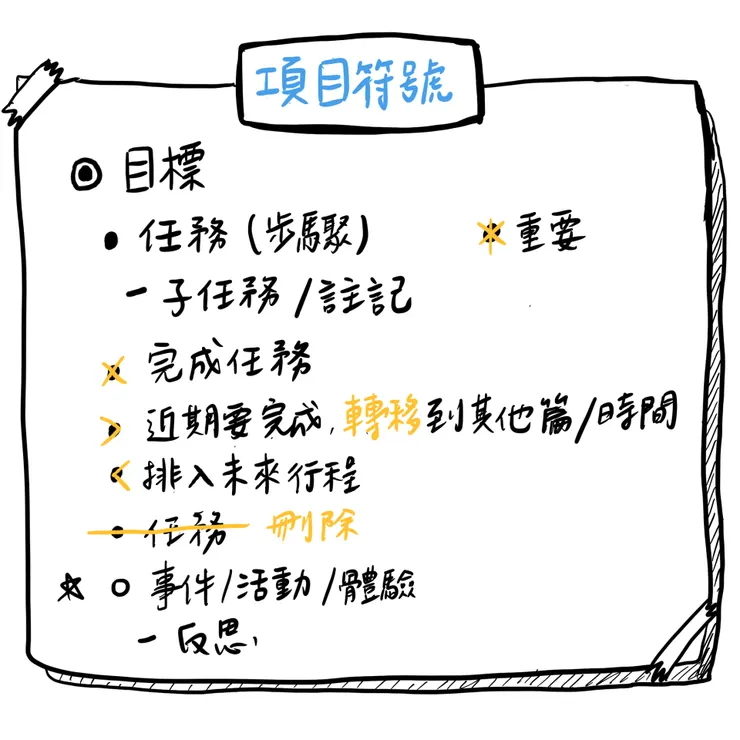 項目符號
◉ 目標
• 任務(步驟)
重要
- 子任務/註記
× 完成任務
> 近期要完成,轉移到其他篇/時間
< 排入未來行程
• 任務 刪除
☆ ○ 事件/活動/體驗
- 反思